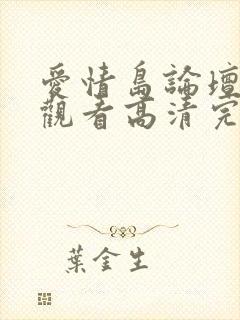 愛情島論壇
觀看高清完
葉金生